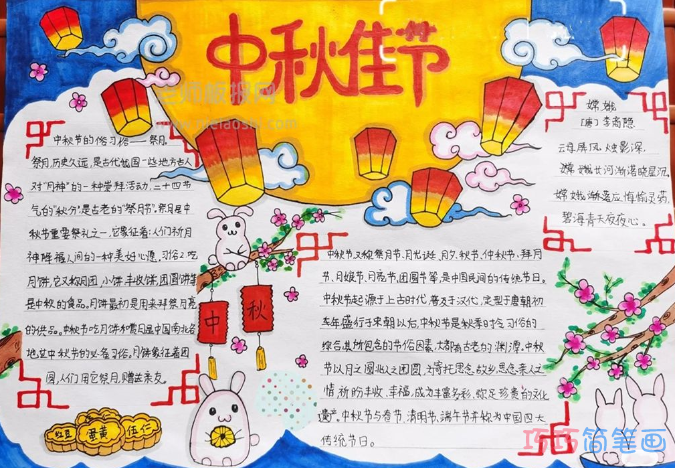 中秋佳节
中秋节的俗习俗——祭月
祭月,历史久远,是古代我国一些地方古人
对"月神"的一种崇拜活动,二十四节
气的"秋分"是古老的"祭月节"。祭月是中
秋节重要祭礼之一,它象征着:人们祈月
神降福人间的一种美好心愿。习俗2吃
月饼,它又称月团、小饼、丰收饼、团圆饼等
是中秋的食品。月饼最初是用来拜祭月亮
的供品。中秋节吃月饼和赏月是中国南北各
地过中秋节的必备习俗。月饼象征着团
圆,人们用它祭月,赠送亲友。
嫦娥
[唐]李商隐
云母屏风烛影深,
嫦娥长河渐落晓星沉。
嫦娥渐落应悔偷灵药,
碧海青天夜夜心。
中秋节又称祭月节、月光诞、月夕、秋节、仲秋节、拜月
节、月娘节、月亮节、团圆节等,是中国民间的传统节日。
中秋节起源于上古时代,普及于汉代,定型于唐朝初
年,盛行于宋朝以后,中秋节是秋季时令习俗的
综合,其所包含的节俗因素,大都有古老的渊源。中秋
节以月之圆兆人之团圆,为寄托思念故乡,思念亲人之
情,祈盼丰收、幸福,成为丰富多彩、弥足珍贵的文化
遗产。中秋节与春节、清明节、端午节并称为中国四大
传统节日。
中
秋
红豆
蛋黄
伍仁
老师板报网
巧巧简笔画